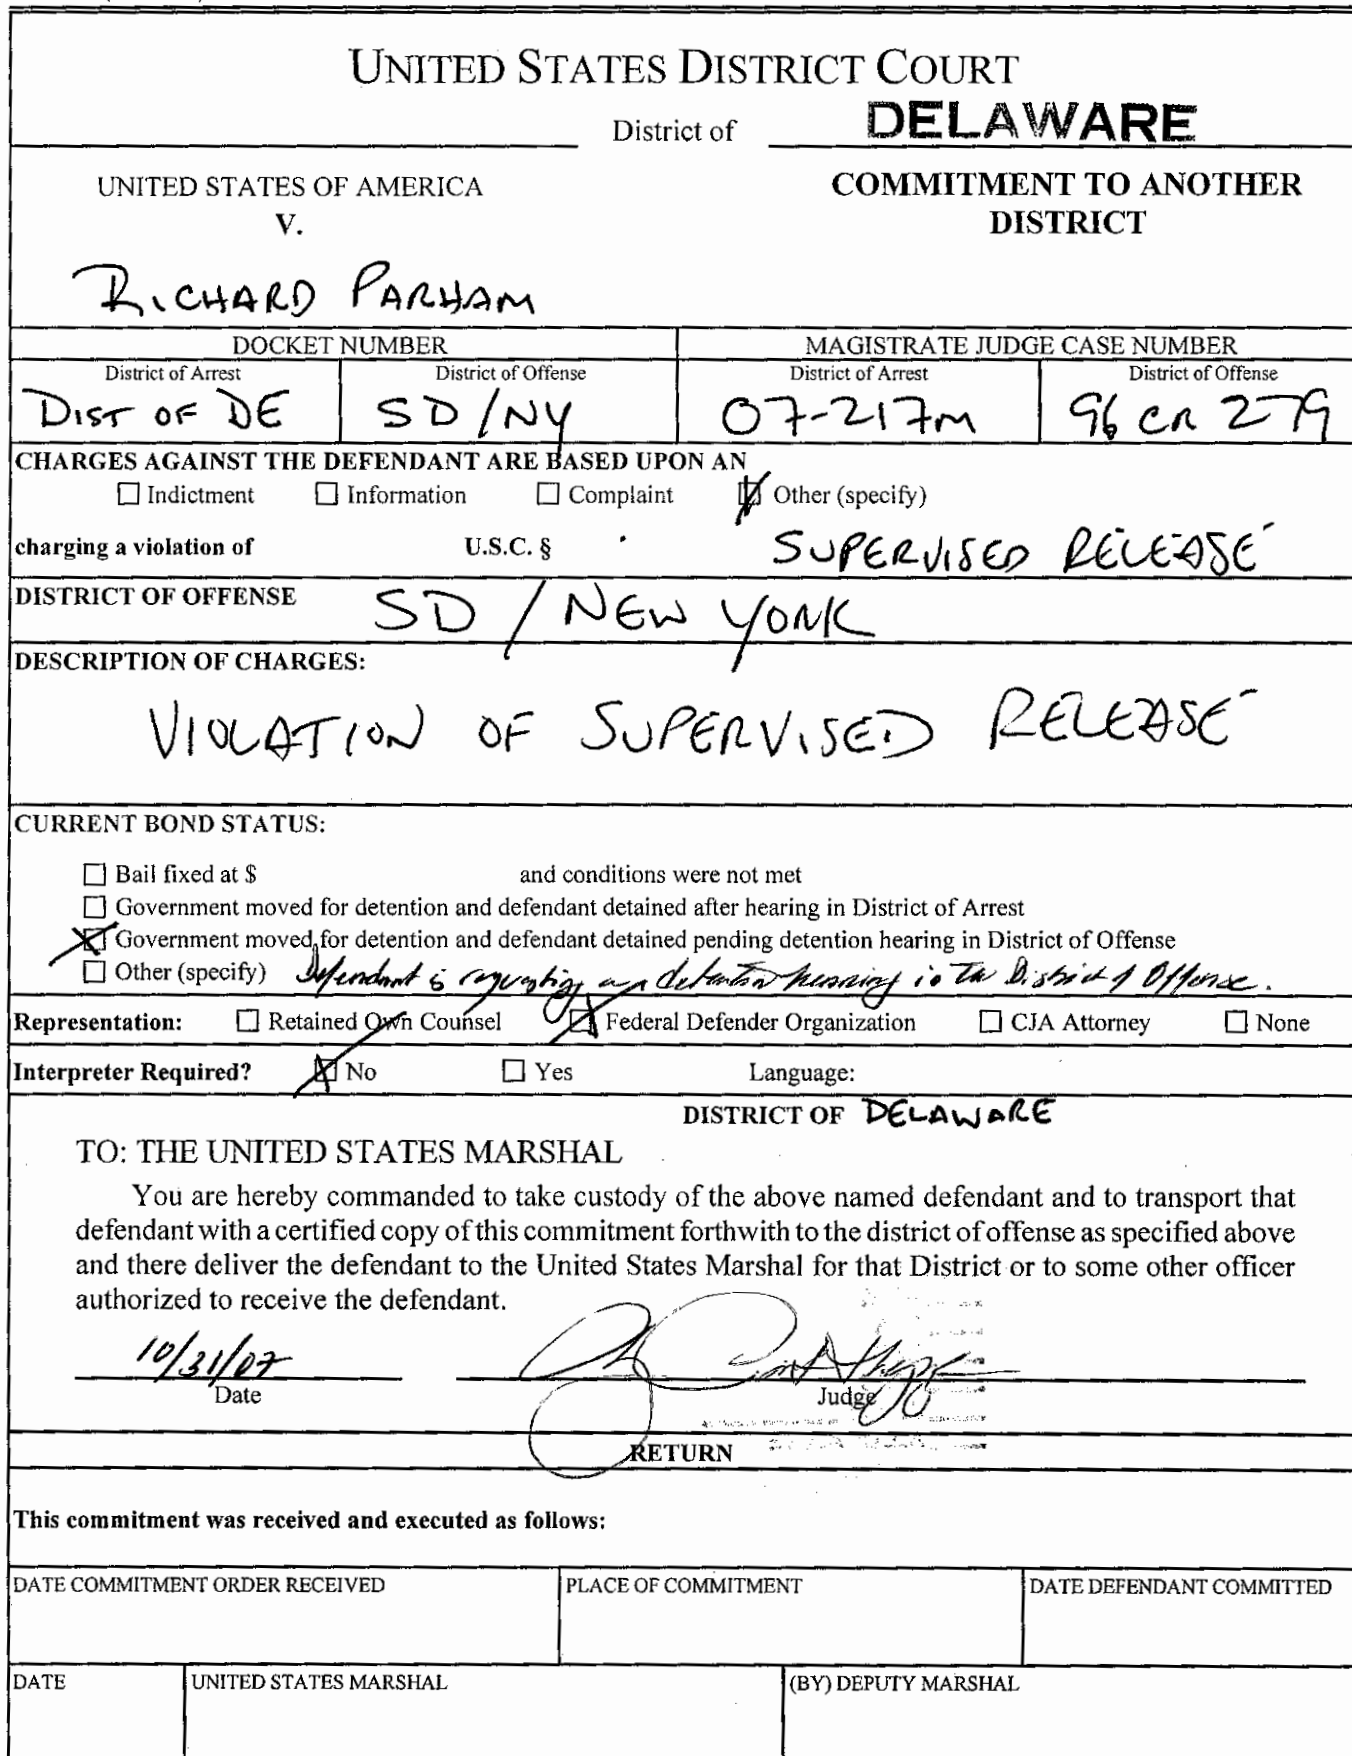 UNITED STATES DISTRICT COURT
District of DELAWARE
UNITED STATES OF AMERICA
V.
RICHARD PARHAM
COMMITMENT TO ANOTHER
DISTRICT
DOCKET NUMBER MAGISTRATE JUDGE CASE NUMBER
District of Arrest District of Offense District of Arrest District of Offense
DIST OF DE SD/NY 07-217m 96 CR 279
CHARGES AGAINST THE DEFENDANT ARE BASED UPON AN
☐ Indictment ☐ Information ☐ Complaint ☒ Other (specify)
charging a violation of U.S.C. § SUPERVISED RELEASE
DISTRICT OF OFFENSE SD / NEW YORK
DESCRIPTION OF CHARGES:
VIOLATION OF SUPERVISED RELEASE
CURRENT BOND STATUS:
☐ Bail fixed at $ and conditions were not met
☐ Government moved for detention and defendant detained after hearing in District of Arrest
☒ Government moved for detention and defendant detained pending detention hearing in District of Offense
☐ Other (specify) Defendant is requesting detention hearing in the District of Offense.
Representation: ☐ Retained Own Counsel ☒ Federal Defender Organization ☐ CJA Attorney ☐ None
Interpreter Required? ☒ No ☐ Yes Language:
DISTRICT OF DELAWARE
TO: THE UNITED STATES MARSHAL
You are hereby commanded to take custody of the above named defendant and to transport that
defendant with a certified copy of this commitment forthwith to the district of offense as specified above
and there deliver the defendant to the United States Marshal for that District or to some other officer
authorized to receive the defendant.
10/31/07
Date Judge
RETURN
This commitment was received and executed as follows:
DATE COMMITMENT ORDER RECEIVED PLACE OF COMMITMENT DATE DEFENDANT COMMITTED
DATE UNITED STATES MARSHAL (BY) DEPUTY MARSHAL